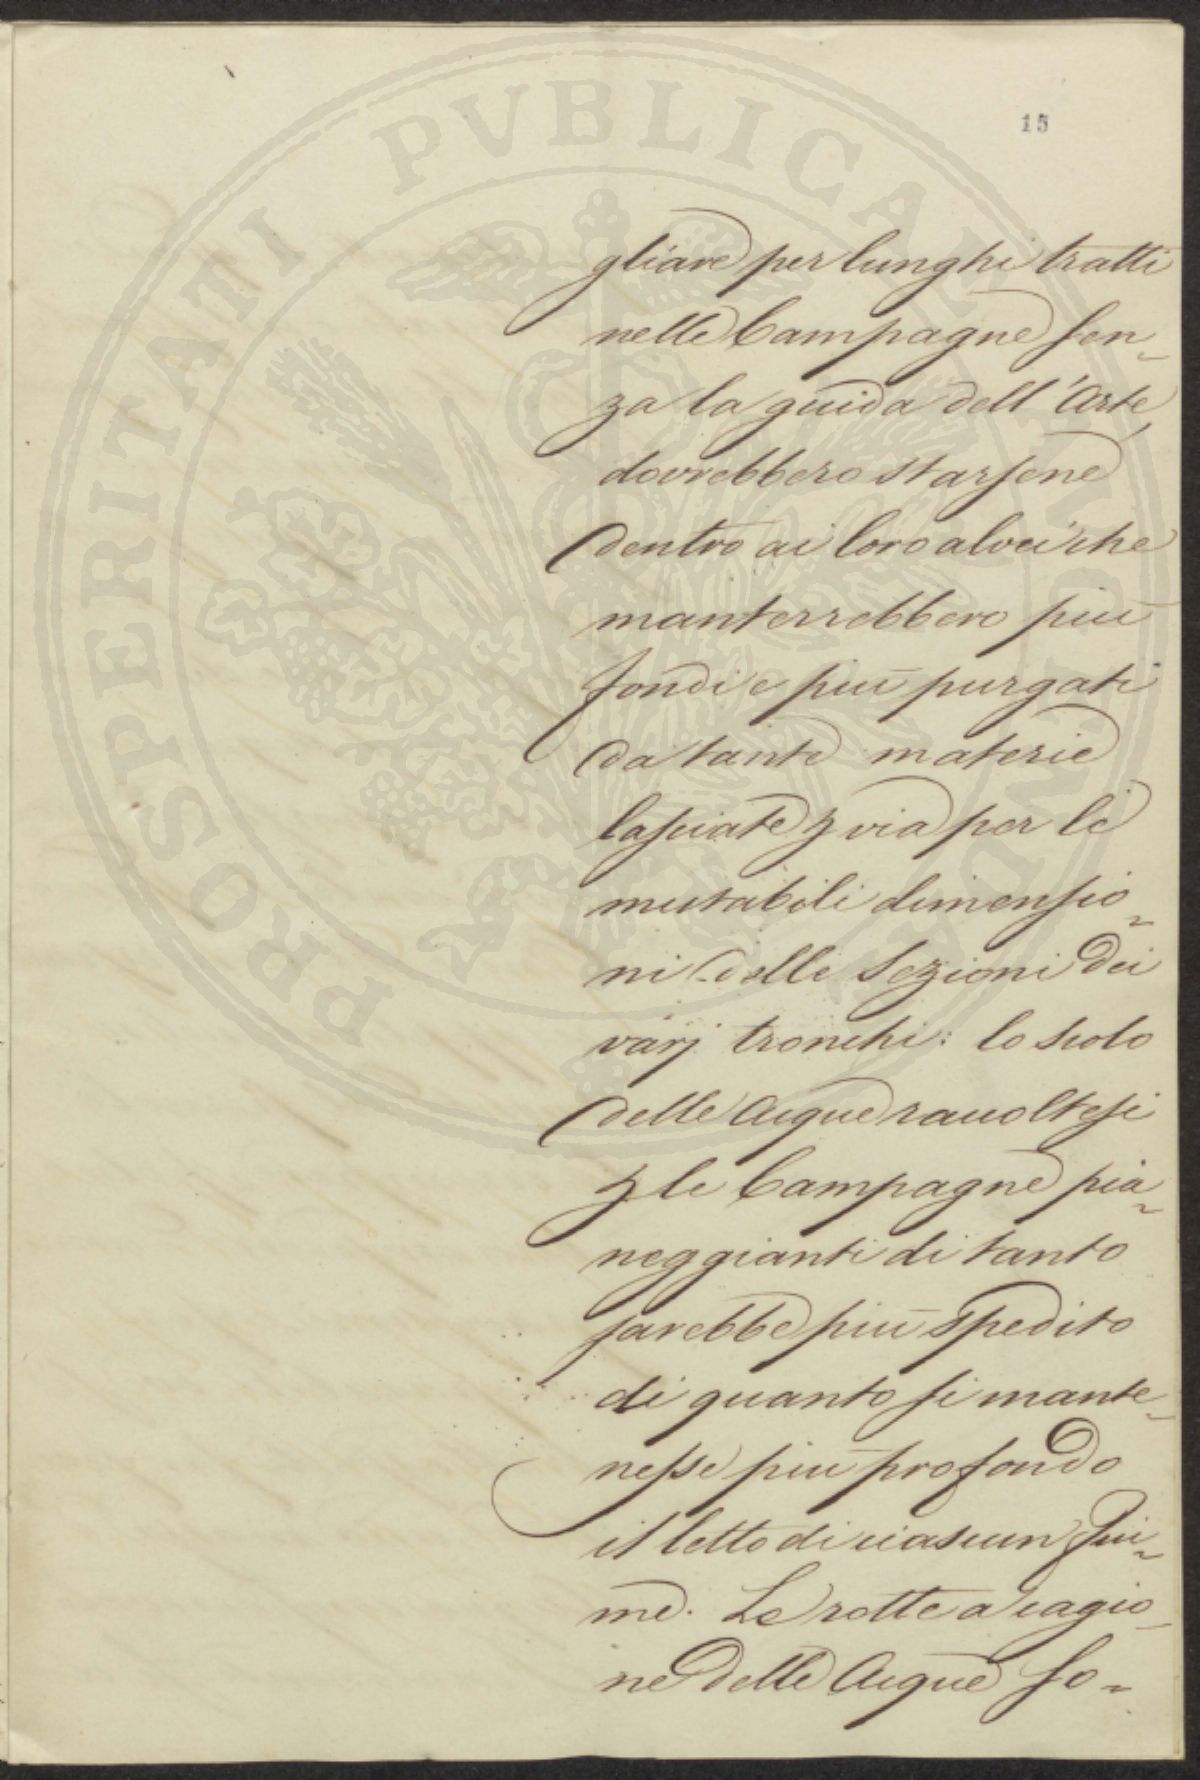 PROSPERITATI PVBLICAE
15
gliare per lunghi tratti
nelle Campagne sen-
za la guida dell'Arte,
dovrebbero starsene
dentro ai loro alvei che
manterrebbero più
fondi e più purgati
da tante materie
lasciate p via per le
mutabili dimensio-
ni delle Sezioni dei
varj tronchi: lo scolo
delle Acque raccoltesi
p le Campagne pia-
neggianti di tanto
sarebbe più spedito
di quanto si mante-
nesse più profondo
il letto di ciascun Fiu-
me. Le rotte a cagio-
ne delle Acque so-